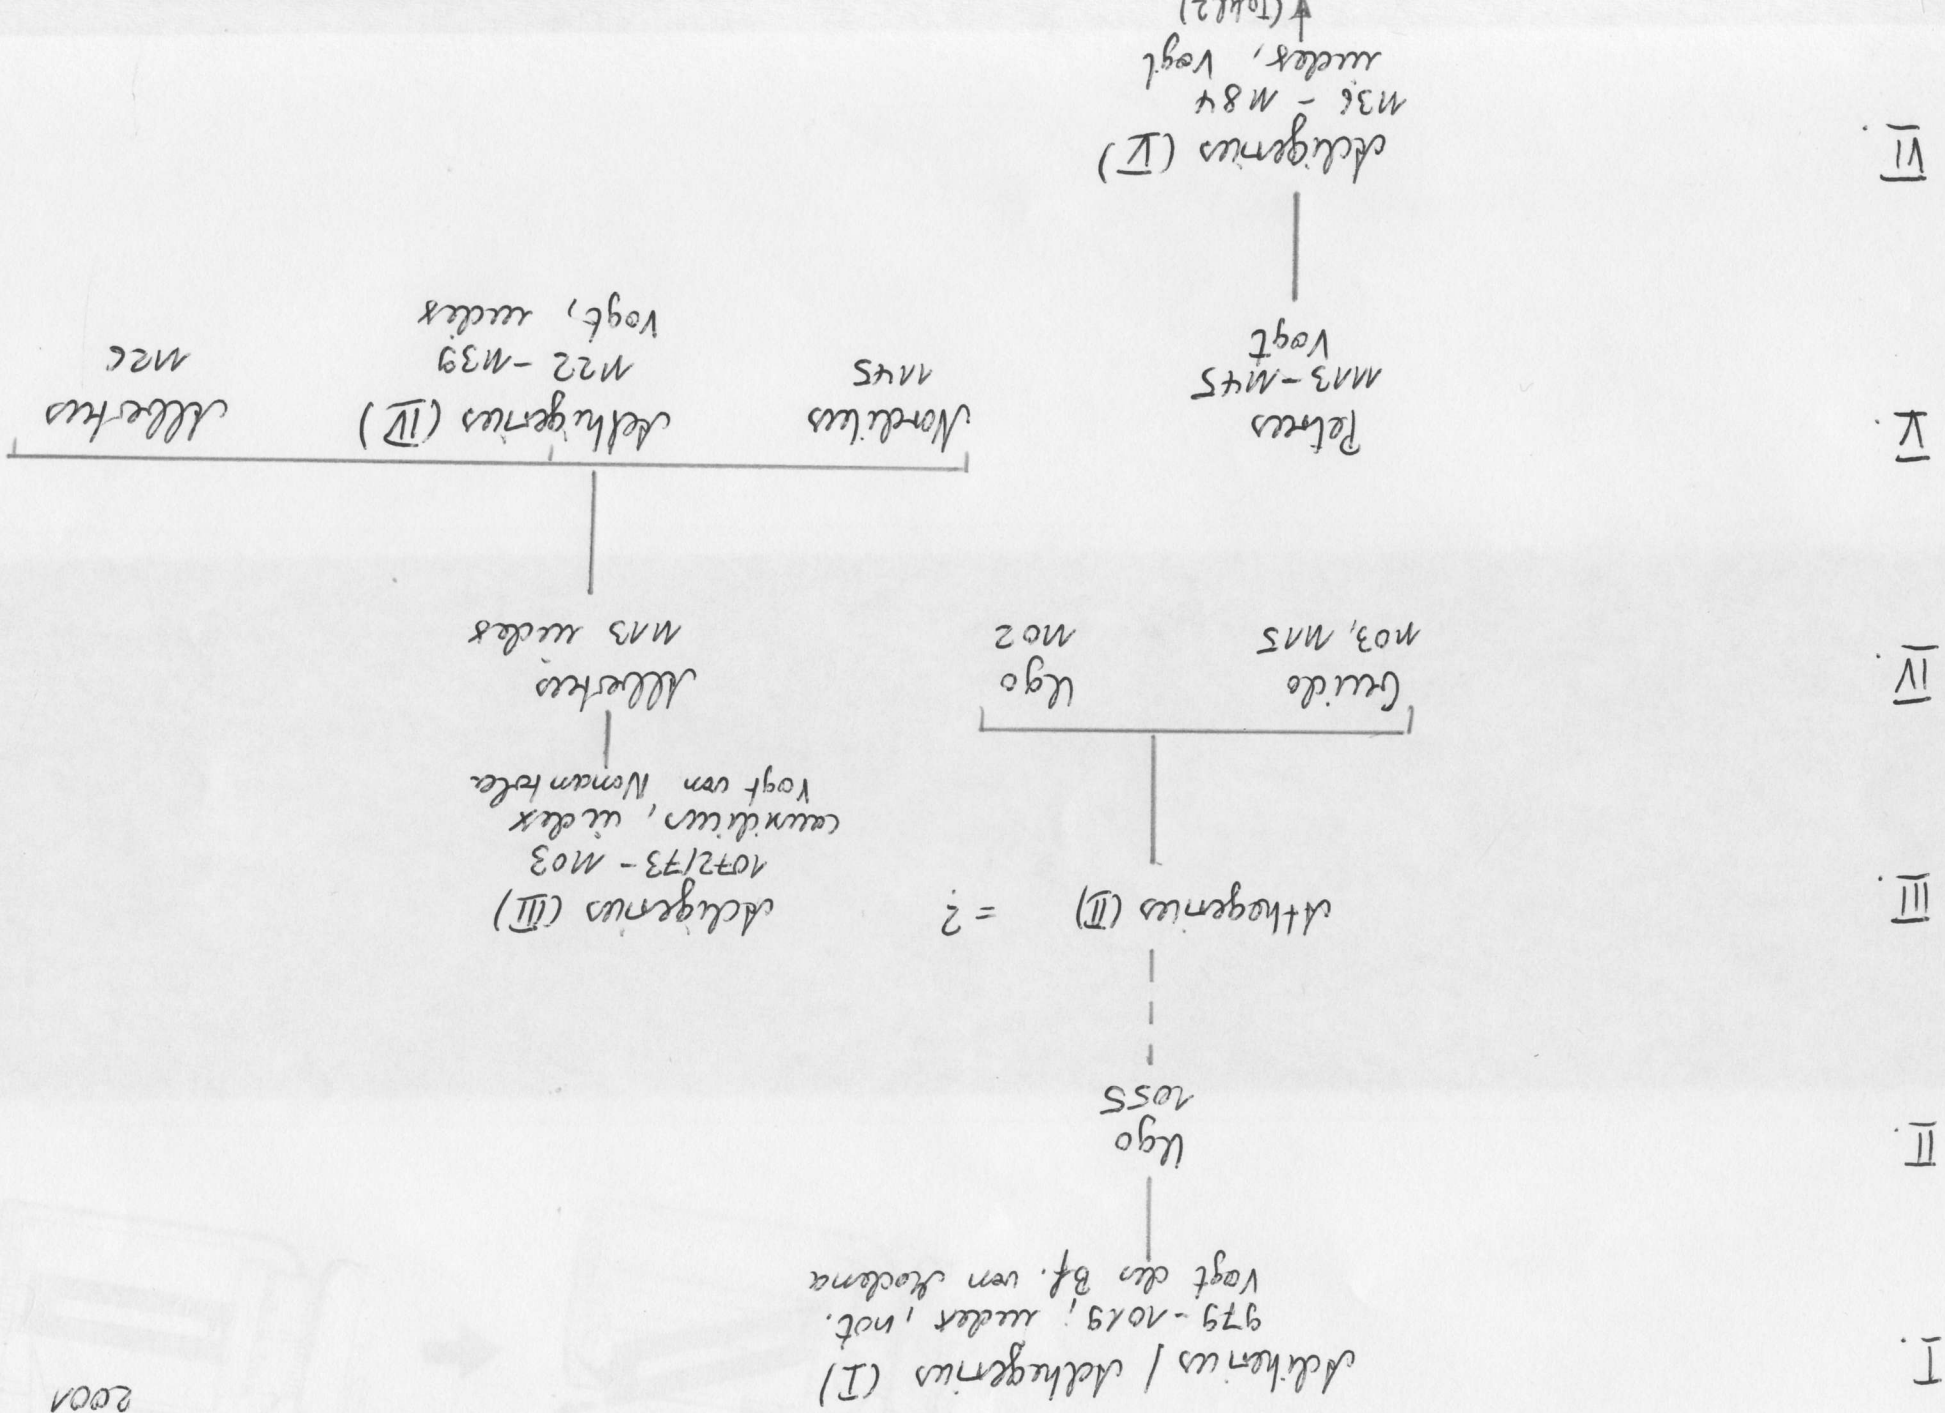 2001
I.
Adikerius / Adhegerius (I)
979-1019; iudex, not.
Vogt des Bf. von Modena
II.
Ugo
1055
III.
Athegerius (II)
= ?
Adigerius (III)
1072/73 - 1103
causidicus, iudex
Vogt von Nonantola
IV.
Guido
1103, 1115
Ugo
1102
Albertus
1113 iudex
V.
Petrus
1113-1145
Vogt
Nordilus
1145
Adhegerius (IV)
1122 - 1139
Vogt, iudex
Albertus
1126
VI.
Adigerius (V)
1136 - 1184
iudex, Vogt
(Tafel 2)